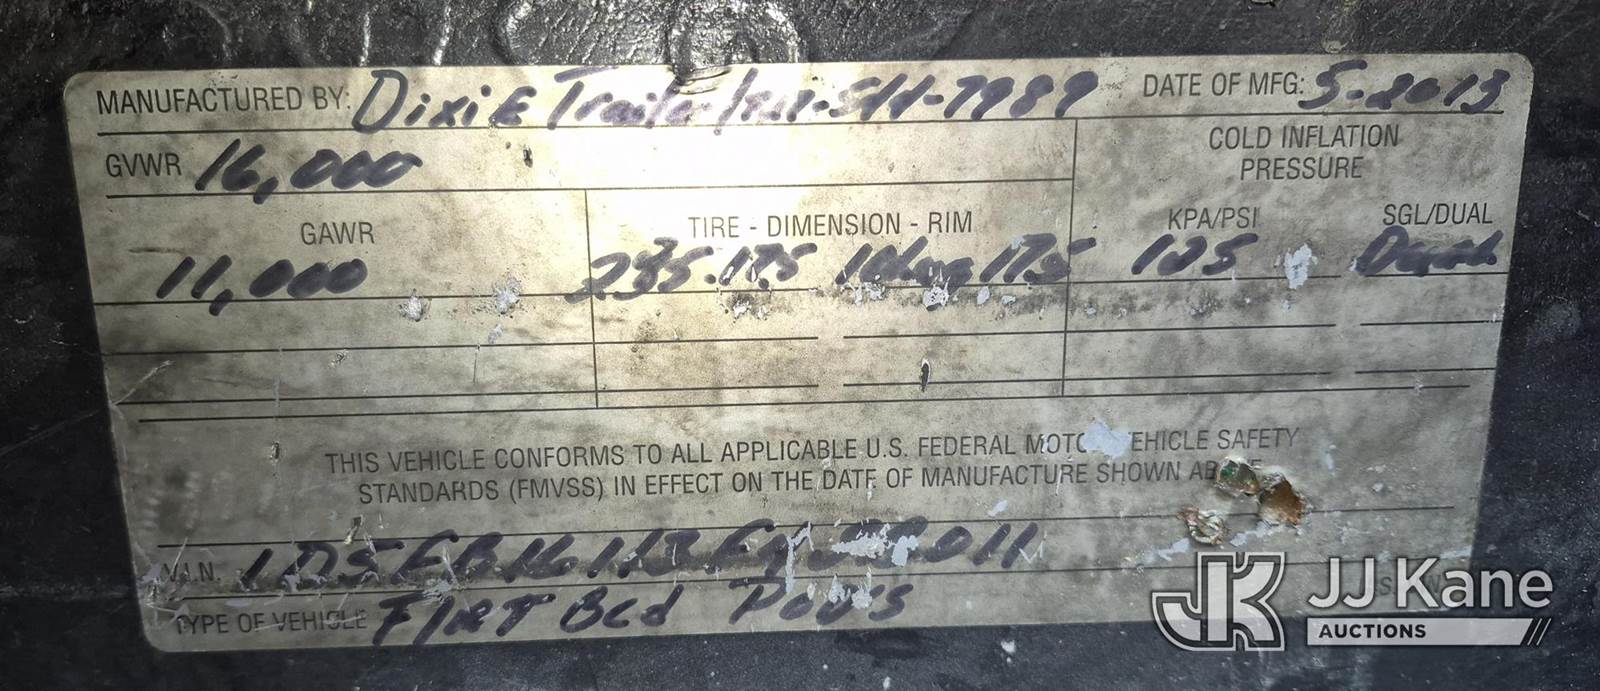 MANUFACTURED BY: DixiE Trailer DATE OF MFG: 5-2013
GVWR 16,000
COLD INFLATION
PRESSURE
GAWR TIRE - DIMENSION - RIM KPA/PSI SGL/DUAL
11,000 235-17.5 17.5 125 Dual
THIS VEHICLE CONFORMS TO ALL APPLICABLE U.S. FEDERAL MOTO EHICLE SAFETY
STANDARDS (FMVSS) IN EFFECT ON THE DATE OF MANUFACTURE SHOWN AB
V.I.N.
TYPE OF VEHICLE FlAT Bed
JK JJ Kane
AUCTIONS